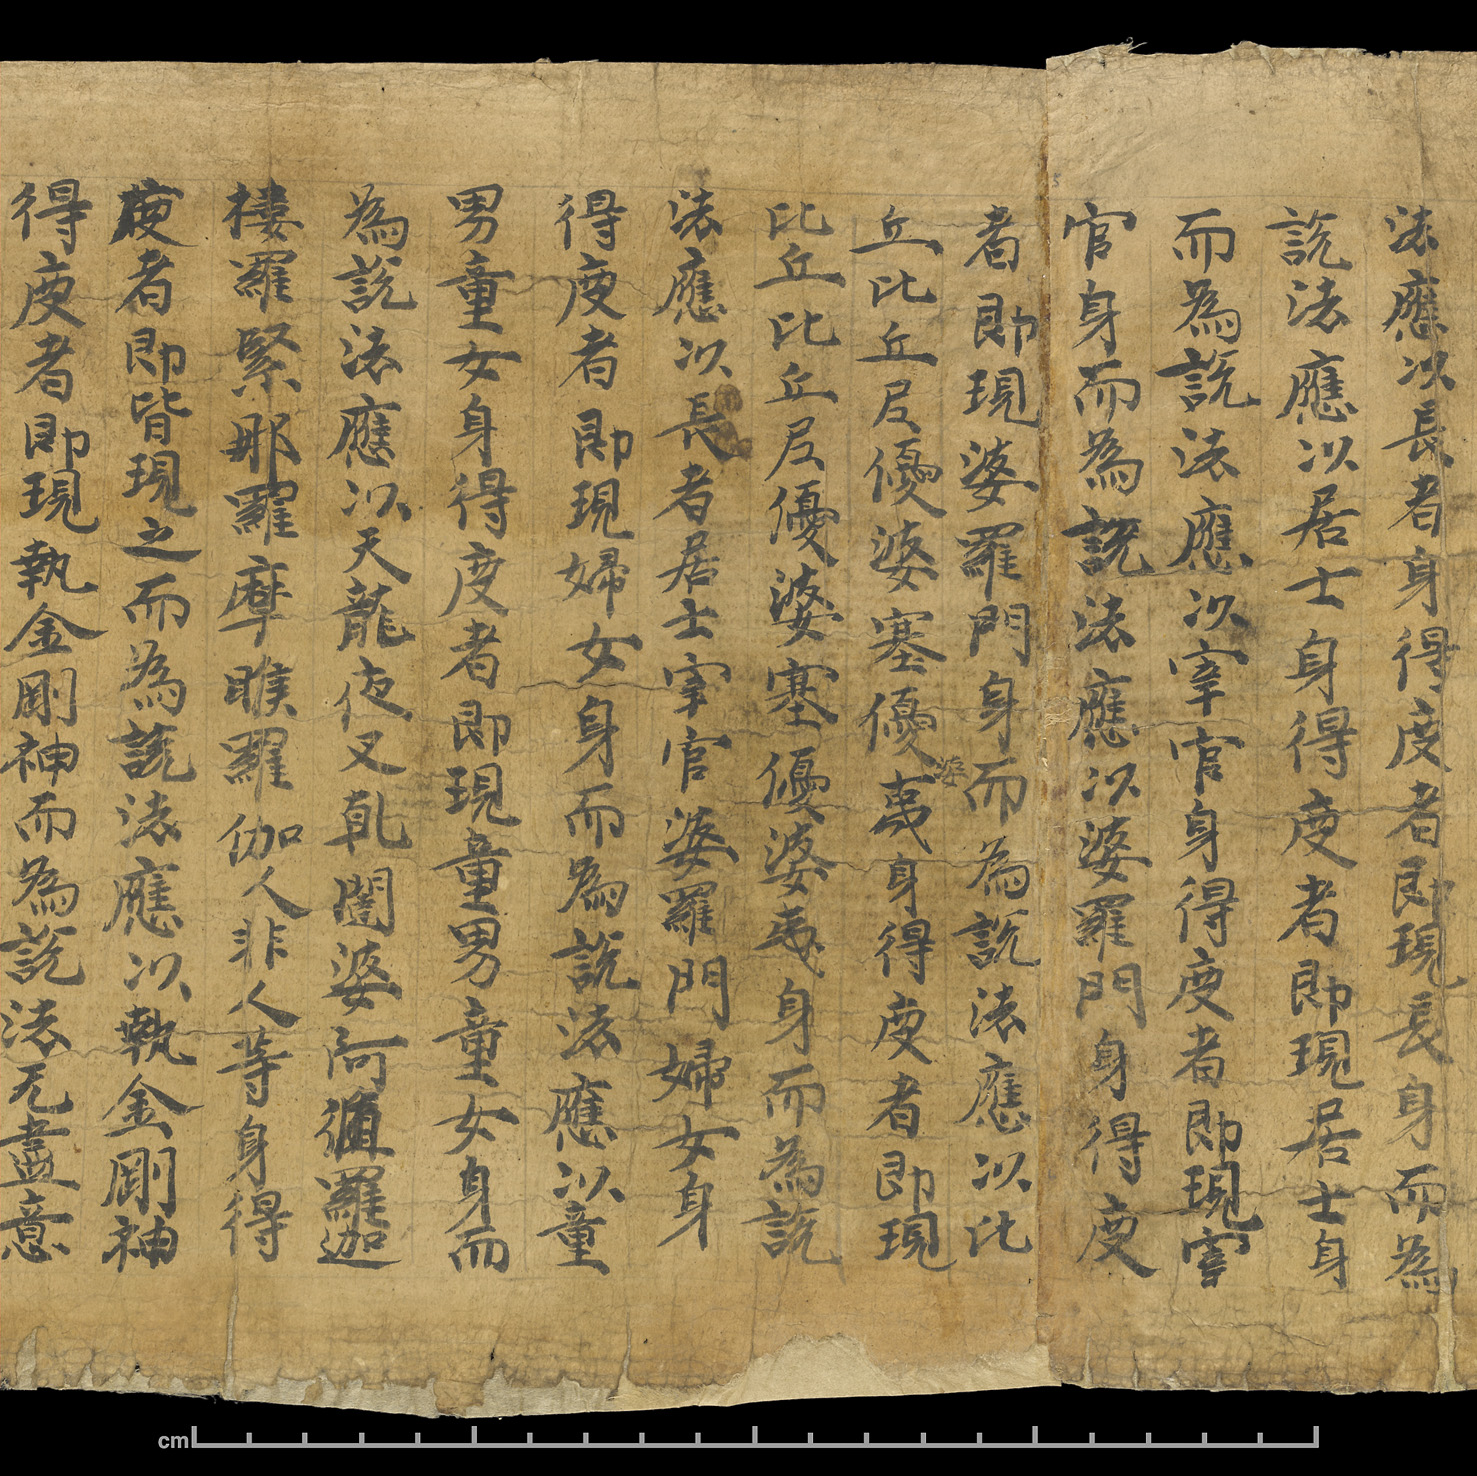 法應以長者身得度者即現長身而為
説法應以居士身得度者即現居士身
而為説法應以宰官身得度者即現宰
官身而為説法應以婆羅門身得度
者即現婆羅門身而為説法應以比
丘比丘尼優婆塞優婆夷身得度者即現
比丘比丘尼優婆塞優婆夷身而為説
法應以長者居士宰官婆羅門婦女身
得度者即現婦女身而為説法應以童
男童女身得度者即現童男童女身而
為説法應以天龍夜叉乹闥婆阿脩羅迦
樓羅緊那羅摩睺羅伽人非人等身得
度者即皆現之而為説法應以執金剛神
得度者即現執金剛神而為説法无盡意